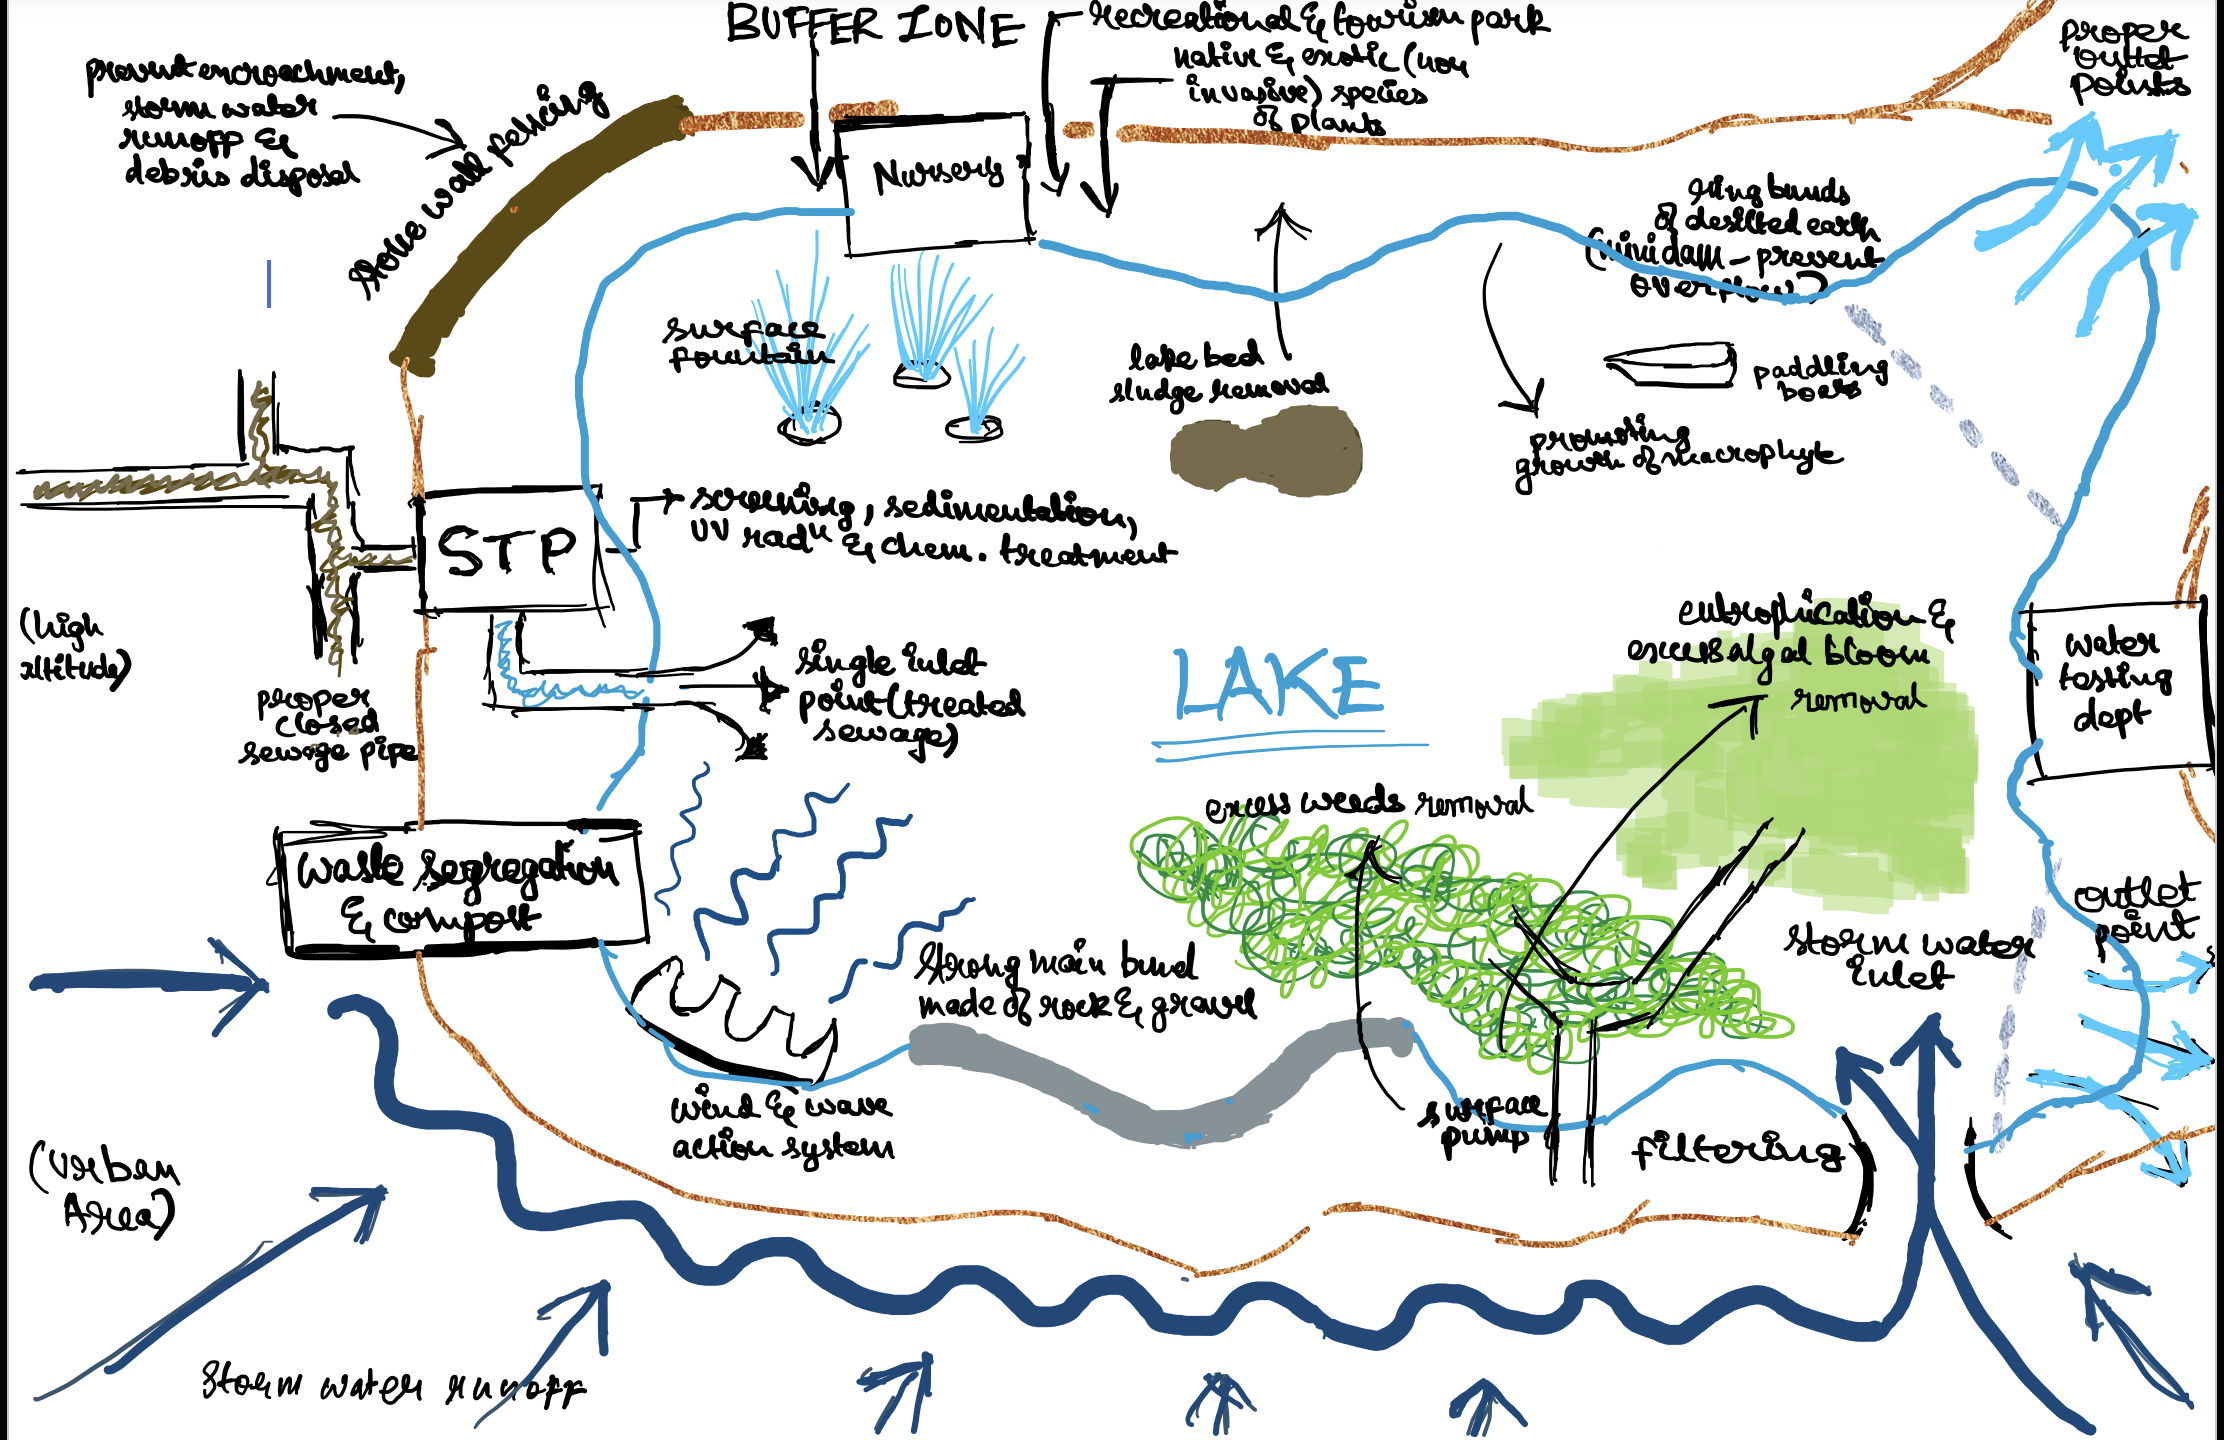 BUFFER ZONE
recreational & tourism park
native & exotic (non
invasive) species
of plants
proper
outlet
points
prevent encroachment,
storm water
runoff &
debris disposal
Stone wall fencing
Nursery
ring bunds
of desilted earth
(minidam - prevent
overflow)
surface
fountain
lake bed
sludge removal
paddling
boats
promoting
growth of macrophyte
STP
screening, sedimentation,
UV radn & chem. treatment
(high
altitude)
proper
closed
sewage pipe
single inlet
point (treated
sewage)
LAKE
eutrophication &
excess algal bloom
removal
water
testing
dept
excess weeds removal
waste segregation
& compost
outlet
point
storm water
inlet
Strong main bund
made of rock & gravel
wind & wave
action system
surface
pump
filtering
(Urban
Area)
Storm water runoff